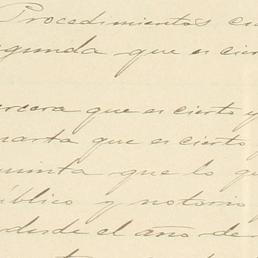 Procedimientos en
egunda que es cier
ercera que es cierto y
uarta que es cierto y
uinta que lo q
úblico y notorio
desde el año de